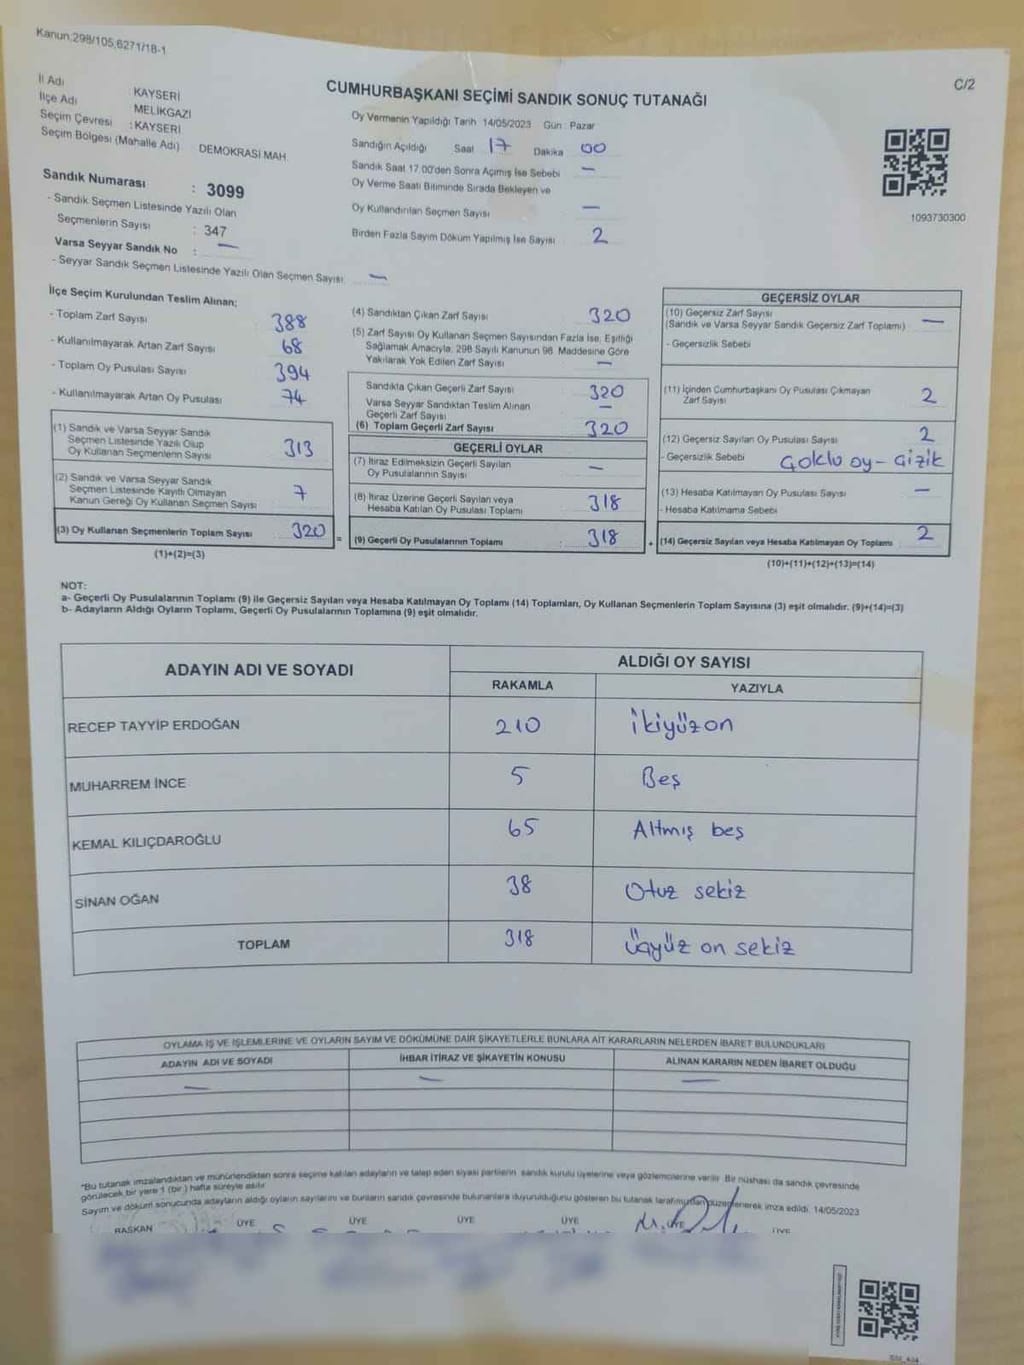 Kanun:298/105,6271/18-1
C/2
İl Adı : KAYSERİ
İlçe Adı MELİKGAZİ
Seçim Çevresi : KAYSERİ
Seçim Bölgesi (Mahalle Adı) DEMOKRASİ MAH.
Sandık Numarası : 3099
- Sandık Seçmen Listesinde Yazılı Olan
Seçmenlerin Sayısı : 347
Varsa Seyyar Sandık No : —
- Seyyar Sandık Seçmen Listesinde Yazılı Olan Seçmen Sayısı —
CUMHURBAŞKANI SEÇİMİ SANDIK SONUÇ TUTANAĞI
Oy Vermenin Yapıldığı Tarih 14/05/2023 Gün : Pazar
Sandığın Açıldığı Saat 17 Dakika 00
Sandık Saat 17.00'den Sonra Açılmış İse Sebebi —
Oy Verme Saati Bitiminde Sırada Bekleyen ve
Oy Kullandırılan Seçmen Sayısı —
Birden Fazla Sayım Döküm Yapılmış İse Sayısı 2
1093730300
İlçe Seçim Kurulundan Teslim Alınan;
- Toplam Zarf Sayısı 388
- Kullanılmayarak Artan Zarf Sayısı 68
- Toplam Oy Pusulası Sayısı 394
- Kullanılmayarak Artan Oy Pusulası 74
(1) Sandık ve Varsa Seyyar Sandık
Seçmen Listesinde Yazılı Olup
Oy Kullanan Seçmenlerin Sayısı 313
(2) Sandık ve Varsa Seyyar Sandık
Seçmen Listesinde Kayıtlı Olmayan
Kanun Gereği Oy Kullanan Seçmen Sayısı 7
(3) Oy Kullanan Seçmenlerin Toplam Sayısı 320 =
(1)+(2)=(3)
(4) Sandıktan Çıkan Zarf Sayısı 320
(5) Zarf Sayısı Oy Kullanan Seçmen Sayısından Fazla İse, Eşitliği
Sağlamak Amacıyla, 298 Sayılı Kanunun 98. Maddesine Göre
Yakılarak Yok Edilen Zarf Sayısı —
Sandıkta Çıkan Geçerli Zarf Sayısı 320
Varsa Seyyar Sandıktan Teslim Alınan
Geçerli Zarf Sayısı —
(6) Toplam Geçerli Zarf Sayısı 320
GEÇERLİ OYLAR
(7) İtiraz Edilmeksizin Geçerli Sayılan
Oy Pusulalarının Sayısı —
(8) İtiraz Üzerine Geçerli Sayılan veya
Hesaba Katılan Oy Pusulası Toplamı 318
(9) Geçerli Oy Pusulalarının Toplamı : 318 +
GEÇERSİZ OYLAR
(10) Geçersiz Zarf Sayısı
(Sandık ve Varsa Seyyar Sandık Geçersiz Zarf Toplamı) —
- Geçersizlik Sebebi
(11) İçinden Cumhurbaşkanı Oy Pusulası Çıkmayan
Zarf Sayısı 2
(12) Geçersiz Sayılan Oy Pusulası Sayısı 2
- Geçersizlik Sebebi Çoklu oy - Çizik
(13) Hesaba Katılmayan Oy Pusulası Sayısı —
- Hesaba Katılmama Sebebi
(14) Geçersiz Sayılan veya Hesaba Katılmayan Oy Toplamı 2
(10)+(11)+(12)+(13)=(14)
NOT:
a- Geçerli Oy Pusulalarının Toplamı (9) ile Geçersiz Sayılan veya Hesaba Katılmayan Oy Toplamı (14) Toplamları, Oy Kullanan Seçmenlerin Toplam Sayısına (3) eşit olmalıdır. (9)+(14)=(3)
b- Adayların Aldığı Oyların Toplamı, Geçerli Oy Pusulalarının Toplamına (9) eşit olmalıdır.
ADAYIN ADI VE SOYADI ALDIĞI OY SAYISI
RAKAMLA YAZIYLA
RECEP TAYYİP ERDOĞAN 210 İkiyüzon
MUHARREM İNCE 5 Beş
KEMAL KILIÇDAROĞLU 65 Altmış beş
SİNAN OĞAN 38 Otuz sekiz
TOPLAM 318 Üçyüz on sekiz
OYLAMA İŞ VE İŞLEMLERİNE VE OYLARIN SAYIM VE DÖKÜMÜNE DAİR ŞİKAYETLERLE BUNLARA AİT KARARLARIN NELERDEN İBARET BULUNDUKLARI
ADAYIN ADI VE SOYADI İHBAR İTİRAZ VE ŞİKAYETİN KONUSU ALINAN KARARIN NEDEN İBARET OLDUĞU
— — —
*Bu tutanak imzalandıktan ve mühürlendikten sonra seçime katılan adayların ve talep eden siyasi partilerin sandık kurulu üyelerine veya gözlemcilerine verilir. Bir nüshası da sandık çevresinde
görülecek bir yere 1 (bir) hafta süreyle asılır.
Sayım ve döküm sonucunda adayların aldığı oyların sayılarını ve bunların sandık çevresinde bulunanlara duyurulduğunu gösteren bu tutanak tarafımızdan düzenlenerek imza edildi. 14/05/2023
BAŞKAN ÜYE ÜYE ÜYE ÜYE ÜYE ÜYE